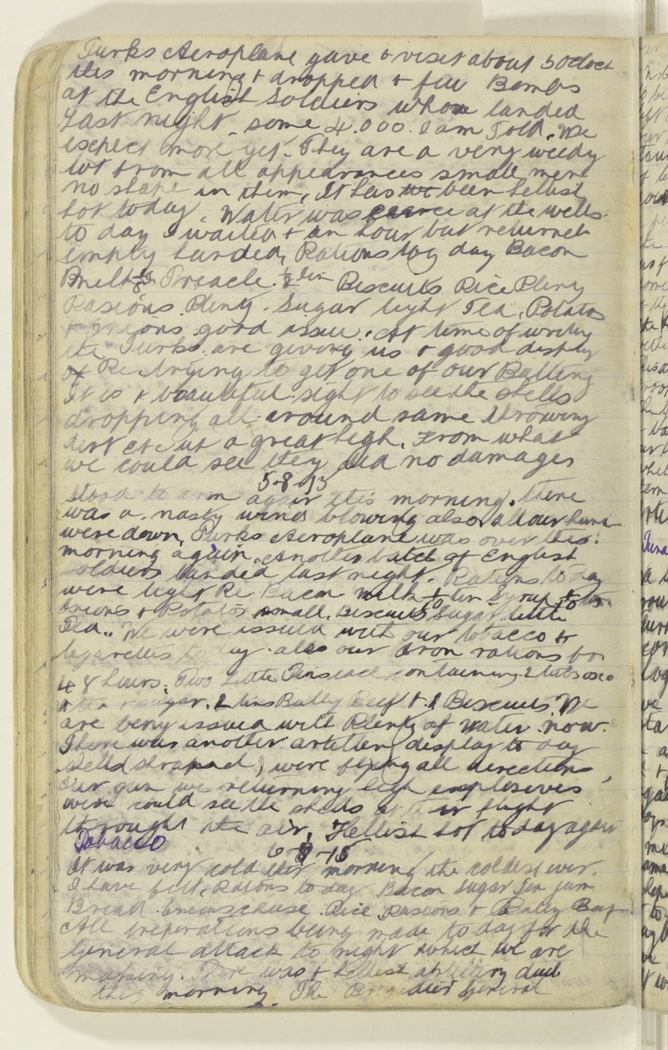 Turks Aeroplane gave & visit about 5 oclock
this morning & dropped & few Bombs
at the English Soldiers whom landed
Last night some 4.000. I am Told. We
expect more yet. They are a very weedy
lot from all appearances small men
no shape in them, It has been Hellish
hot today. Water was scarce at the wells
to day I waited & an hour but returned
empty handed, Rations to day Bacon
Treacle ½ tin Biscuits Rice Plenty
Rasions Plenty. Sugar light Tea, Potatos
& onions good issue. At time of writing
the Turks are giving us & good display
of Re trying to get one of our Battery
It is & beautiful sight to see the shells
dropping all around same throwing
dirt etc at a great high. From what
we could see they did no damages
5-8-15
Stood to arm again this morning. there
was a nasty wind blowing also all our
were down, Turks Aeroplane was over this
morning again. Another batch of English
Soldiers landed last night. Rations to day
were light Re Bacon milk & tin Syrup to
onions & Potatos small. Biscuits Sugar little
Tea.. We were issued with our tobacco &
Cigarettes to day also our Iron rations for
48 hours. Two little Tins each containing 2
tea & sugar. 2 tins Bully Beef & Biscuits. We
are being issued with Plenty of Water now.
There was another artillery display to day
shells shrapnel were flying all directions
our gun we returning high explosives
were could see the shells at their flight
throught the air, Hellish hot today again
Tobacco
6-8-15
It was very cold this morning the coldest ever
I have felt, Rasons to day Bacon Sugar Tea Jam
Bread onions cheese Rice Rasions & Bully
All preperations being made to day for the
General attack to night which we are
making. There was & Hellish artillery duel
this morning. The Brigadier General